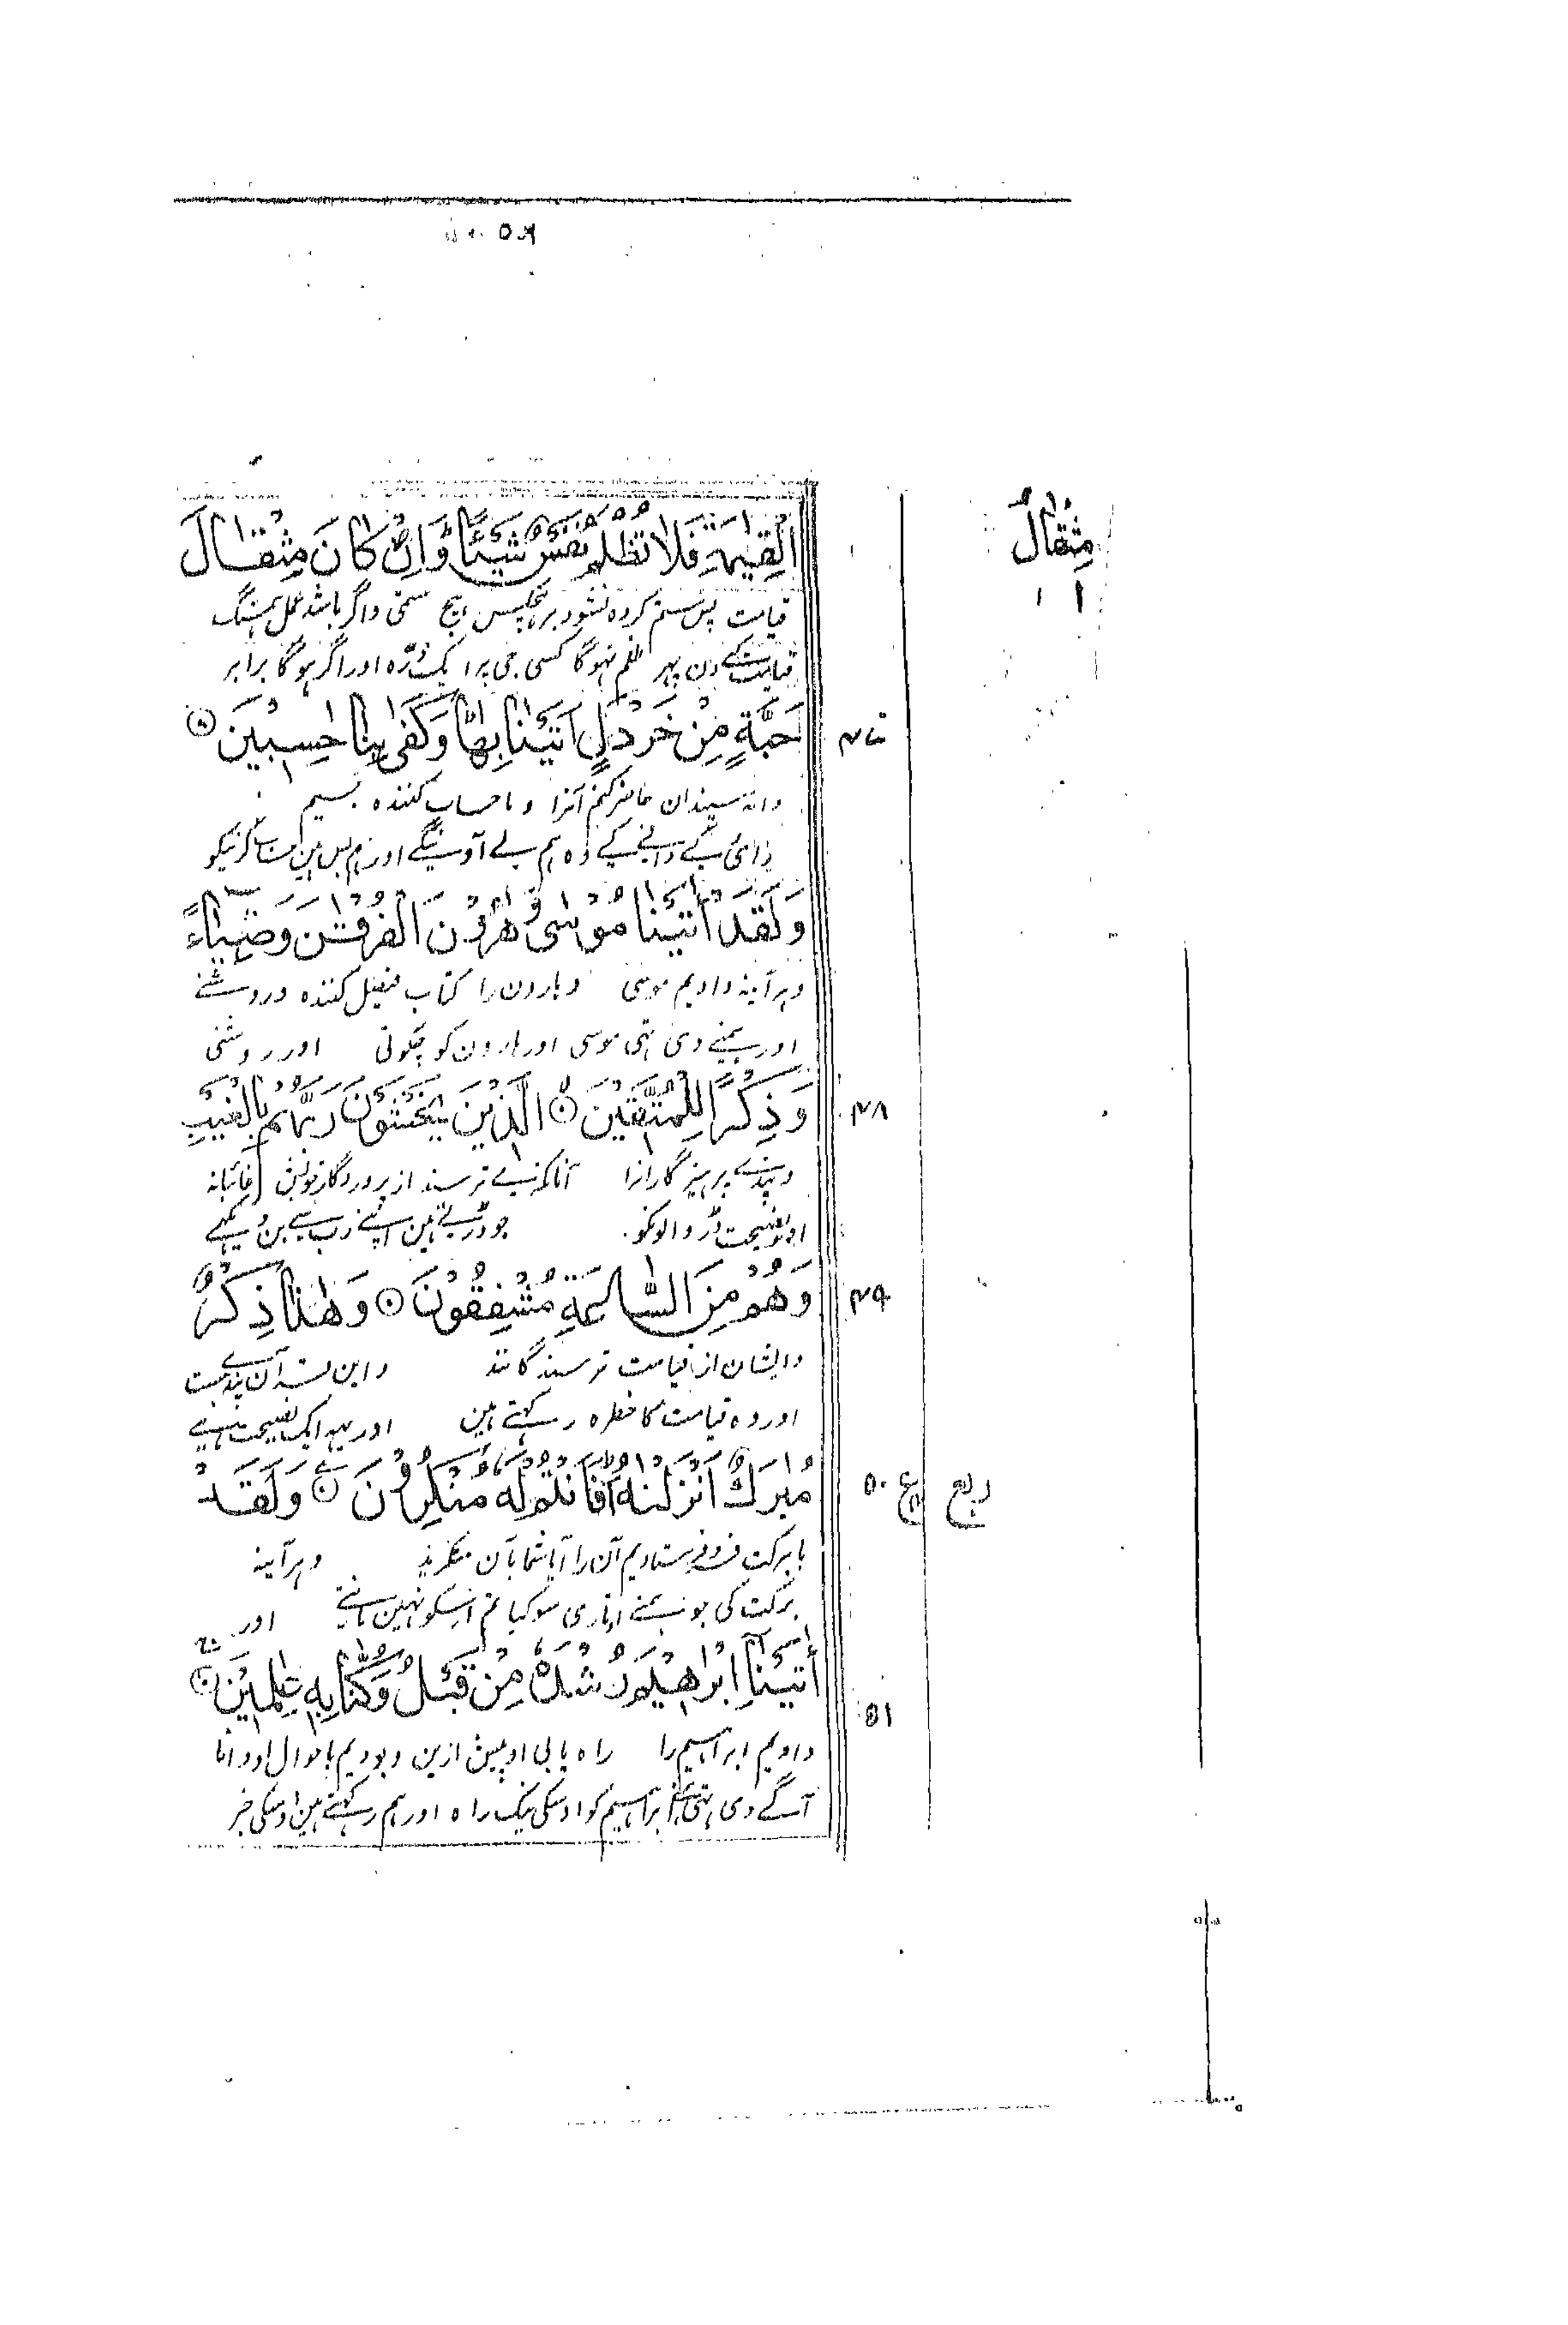 مِثْقَالٌ
الْقِيٰمَةِ فَلَا تُظْلَمُ نَفْسٌ شَيْئًا وَّاِنْ كَانَ مِثْقَالَ
قیامت پس ستم کرده نشود بر هیچکس هیچ ستمی و اگر باشد عمل همسنگ
قیامت کے دن پہر ظلم نہوگا کسی جی پر ایک ذرّہ اور اگر ہوگا برابر
حَبَّةٍ مِّنْ خَرْدَلٍ اَتَيْنَا بِهَا وَكَفٰى بِنَا حٰسِبِيْنَ ۴۷
دانه سپندان حاضر کنیم آنرا و ما حساب کننده بسیم
رائی کے دانے کے وہ ہم لے آوینگے اور ہم بس ہین حساب کرنیکو
وَلَقَدْ اٰتَيْنَا مُوْسٰى وَهٰرُوْنَ الْفُرْقَانَ وَضِيَآءً
و هرآینه دادیم موسی و هارون را کتاب فیصل کننده و روشنے
اور ہمنے دی تہی موسی اور ہارون کو چکوتی اور روشنی
وَّذِكْرًا لِّلْمُتَّقِيْنَ الَّذِيْنَ يَخْشَوْنَ رَبَّهُمْ بِالْغَيْبِ ۴۸
و پندے پرهیزگارانرا آنانکه می ترسند از پروردگار خویش غائبانه
اور نصیحت ڈر والونکو جو ڈرتے ہین اپنے رب سے بن دیکہے
وَهُمْ مِّنَ السَّاعَةِ مُشْفِقُوْنَ وَهٰذَا ذِكْرٌ ۴۹
و ایشان از قیامت ترسندگانند و این قرآن پندیست
اور وہ قیامت کا خطرہ رکہتے ہین اور یہہ ایک نصیحت ہے
مُّبٰرَكٌ اَنْزَلْنٰهُ اَفَاَنْتُمْ لَهٗ مُنْكِرُوْنَ وَلَقَدْ ۵۰ ع ربع
با برکت فرو فرستادیم آن را آیا شما بآن منکرید و هرآینه
برکت کی جو ہمنے اوتاری سو کیا تم اوسکو نہین مانتے اور
اٰتَيْنَآ اِبْرٰهِيْمَ رُشْدَهٗ مِنْ قَبْلُ وَكُنَّا بِهٖ عٰلِمِيْنَ ۵۱
دادیم ابراهیم را راه یابی او پیش ازین و بودیم باحوال او دانا
آگے دی تہی ہمنے ابراہیم کو اوسکی نیک راہ اور ہم رکہتے ہین اوسکی خبر